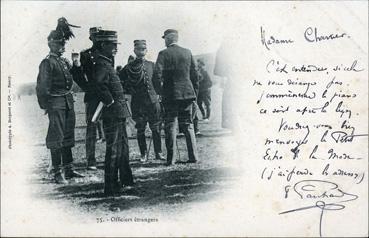 Madame Charrier.
C'est entendu, si cela
ne vous dérange pas, je
commencerai le piano
ce soir après la leçon
Voudrez-vous bien
m'envoyer le Petit
Echo de la Mode
(j'ai perdu le adresse)
75. - Officiers étrangers
Phototypie A. Bergeret et Cie. - Nancy.